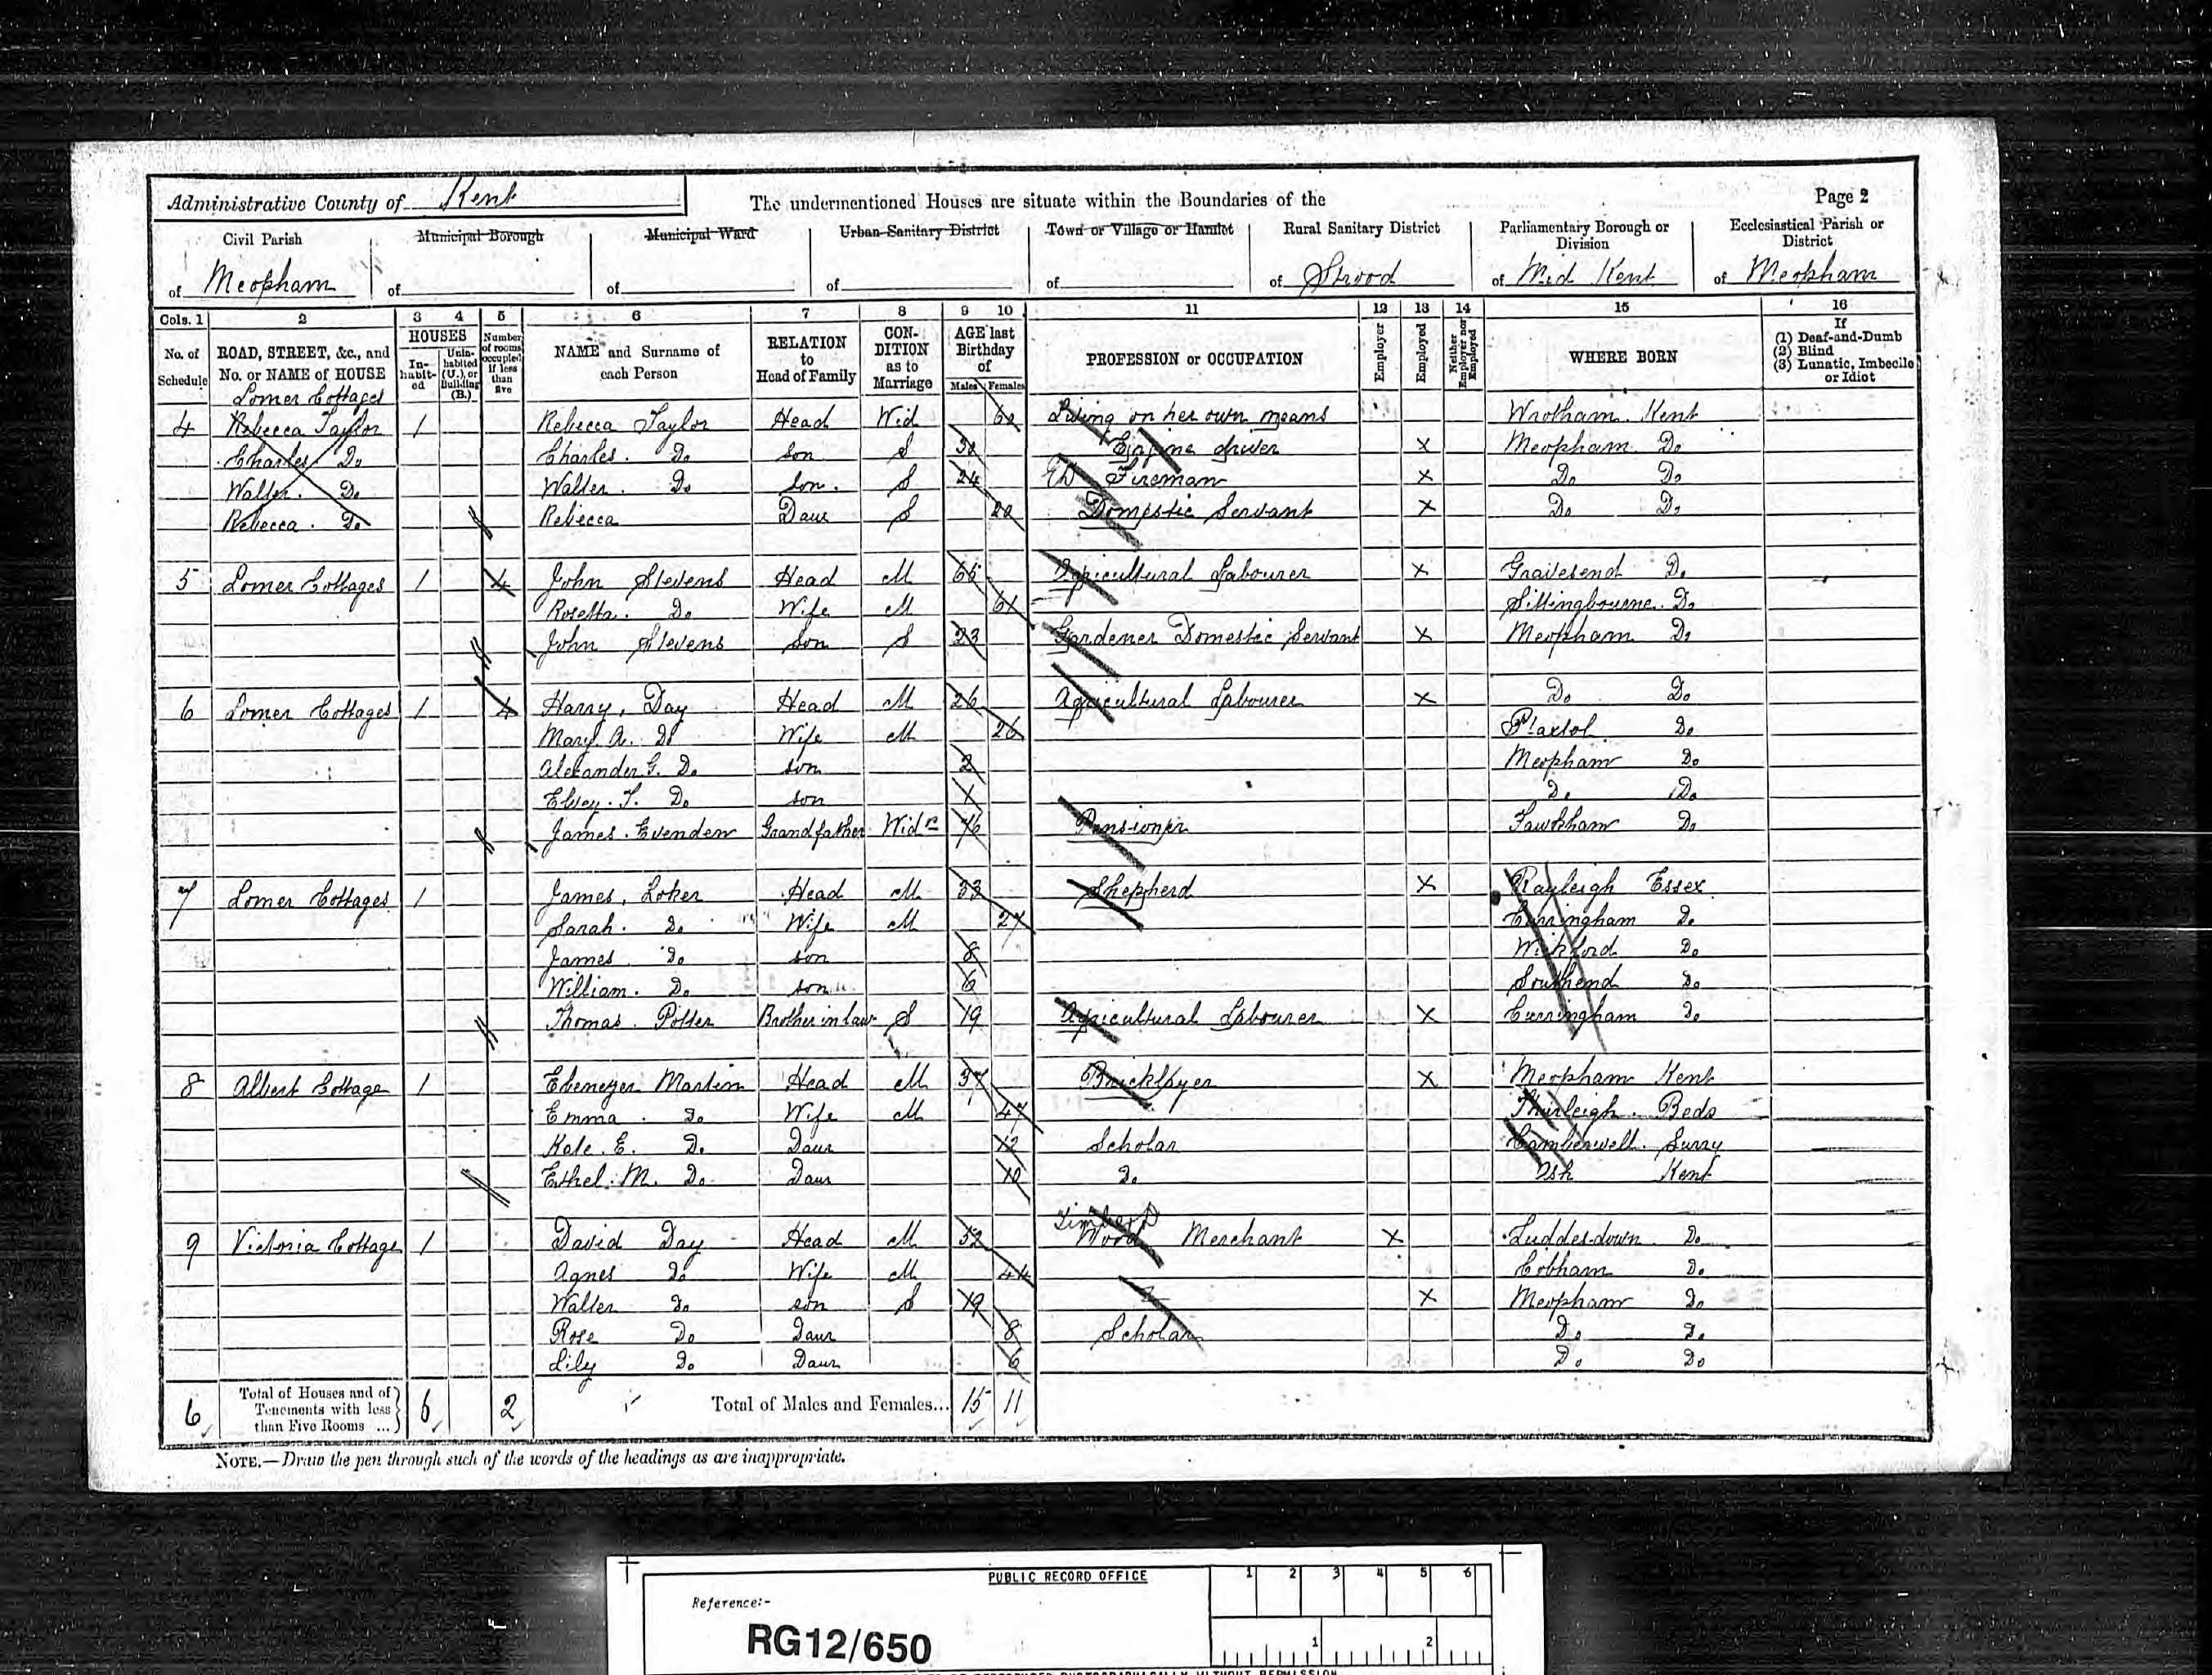 Administrative County of Kent
The undermentioned Houses are situate within the Boundaries of the
Page 2
Civil Parish of Meopham
Municipal Borough of
Municipal Ward of
Urban Sanitary District of
Town or Village or Hamlet of
Rural Sanitary District of Strood
Parliamentary Borough or Division of Mid Kent
Ecclesiastical Parish or District of Meopham
Cols. 1 2 3 4 5 6 7 8 9 10 11 12 13 14 15 16
No. of Schedule
ROAD, STREET, &c., and No. or NAME of HOUSE
HOUSES
Inhabited
Uninhabited (U.), or Building (B.)
Number of rooms occupied if less than five
NAME and Surname of each Person
RELATION to Head of Family
CONDITION as to Marriage
AGE last Birthday of
Males Females
PROFESSION or OCCUPATION
Employer
Employed
Neither Employer nor Employed
WHERE BORN
If (1) Deaf-and-Dumb (2) Blind (3) Lunatic, Imbecile or Idiot
Lomer Cottages
4 Rebecca Taylor 1 Rebecca Taylor Head Wid Living on her own means Wrotham Kent
Charles Do Charles Do son S 30 Engine driver X Meopham Do
Walter Do Walter Do son S 24 Fireman X Do Do
Rebecca Do Rebecca Daur S 20 Domestic Servant X Do Do
5 Lomer Cottages 1 4 John Stevens Head M 65 Agricultural Labourer X Gravesend Do
Rosetta Do Wife M 61 Sittingbourne Do
John Stevens son S 23 Gardener Domestic Servant X Meopham Do
6 Lomer Cottages 1 4 Harry Day Head M 26 Agricultural Labourer X Do Do
Mary A. Do Wife M 26 Plaxtol Do
Alexander G. Do son 2 Meopham Do
Elvey T. Do son 1 Do Do
James Evenden Grandfather Widr 76 Pensioner Fawkham Do
7 Lomer Cottages 1 James Loker Head M 33 Shepherd X Rayleigh Essex
Sarah Do Wife M 27 Curringham Do
James Do son 8 Wickford Do
William Do son 6 Southend Do
Thomas Potter Brother in law S 19 Agricultural Labourer X Curringham Do
8 Albert Cottage 1 Ebenezer Martin Head M 37 Bricklayer X Meopham Kent
Emma Do Wife M 47 Thurleigh Beds
Kate E. Do Daur 12 Scholar Camberwell Surry
Ethel M. Do Daur 10 Do Ash Kent
9 Victoria Cottage 1 David Day Head M 52 Timber Wood Merchant X Luddesdown Do
Agnes Do Wife M 44 Cobham Do
Walter Do son S 19 X Meopham Do
Rose Do Daur 8 Scholar Do Do
Lily Do Daur 6 Do Do
6 Total of Houses and of Tenements with less than Five Rooms ... 6 2 Total of Males and Females... 15 11
NOTE.—Draw the pen through such of the words of the headings as are inappropriate.
PUBLIC RECORD OFFICE
1 2 3 4 5 6
Reference:-
RG12/650
1 2